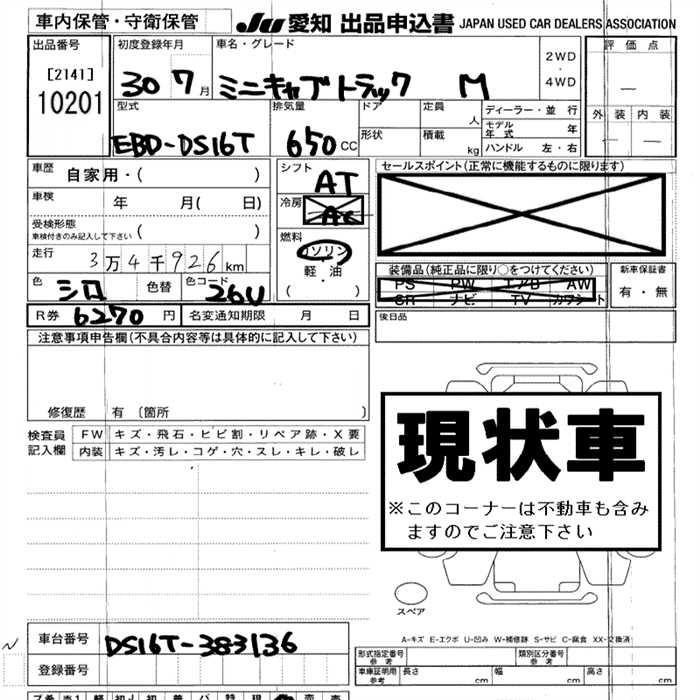 車内保管・守衛保管
JU 愛知 出品申込書 JAPAN USED CAR DEALERS ASSOCIATION
出品番号 初度登録年月 車名・グレード 2WD ・ 4WD 評価点
[2141]
10201
30 7月 ミニキャブトラック M
外装 内装
型式 排気量 ドア 定員 人 ディーラー・並行
EBD-DS16T 650CC 形状 積載 kg モデル年式 年
ハンドル 左・右
車歴 自家用・( ) シフト AT セールスポイント(正常に機能するものに限ります)
車検 年 月( 日) 冷房 AC
受検形態 車検付きのみ記入して下さい ( ) 燃料 ガソリン
走行 3万4千926km 軽・油 ( ・ )
装備品(純正品に限り○をつけてください) 新車保証書
PS PW エアB AW
SR ナビ TV カワシート
有・無
色 シロ 色替 色コード 26U
R券 6270円 名変通知期限 月 日 後日品
注意事項申告欄(不具合内容等は具体的に記入して下さい)
修復歴 有 〔箇所 〕
検査員記入欄 FW キズ・飛石・ヒビ割・リペア跡・X要
内装 キズ・汚レ・コゲ・穴・スレ・キレ・破レ
現状車
※このコーナーは不動車も含み
ますのでご注意下さい
スペア
A-キズ E-エクボ U-凹み W-補修跡 S-サビ C-腐食 XX-交換済
車台番号 DS16T-383136
登録番号
型式指定番号 参考 類別区分番号 参考
車庫証明用 参考 長さ cm 幅 cm 高さ cm